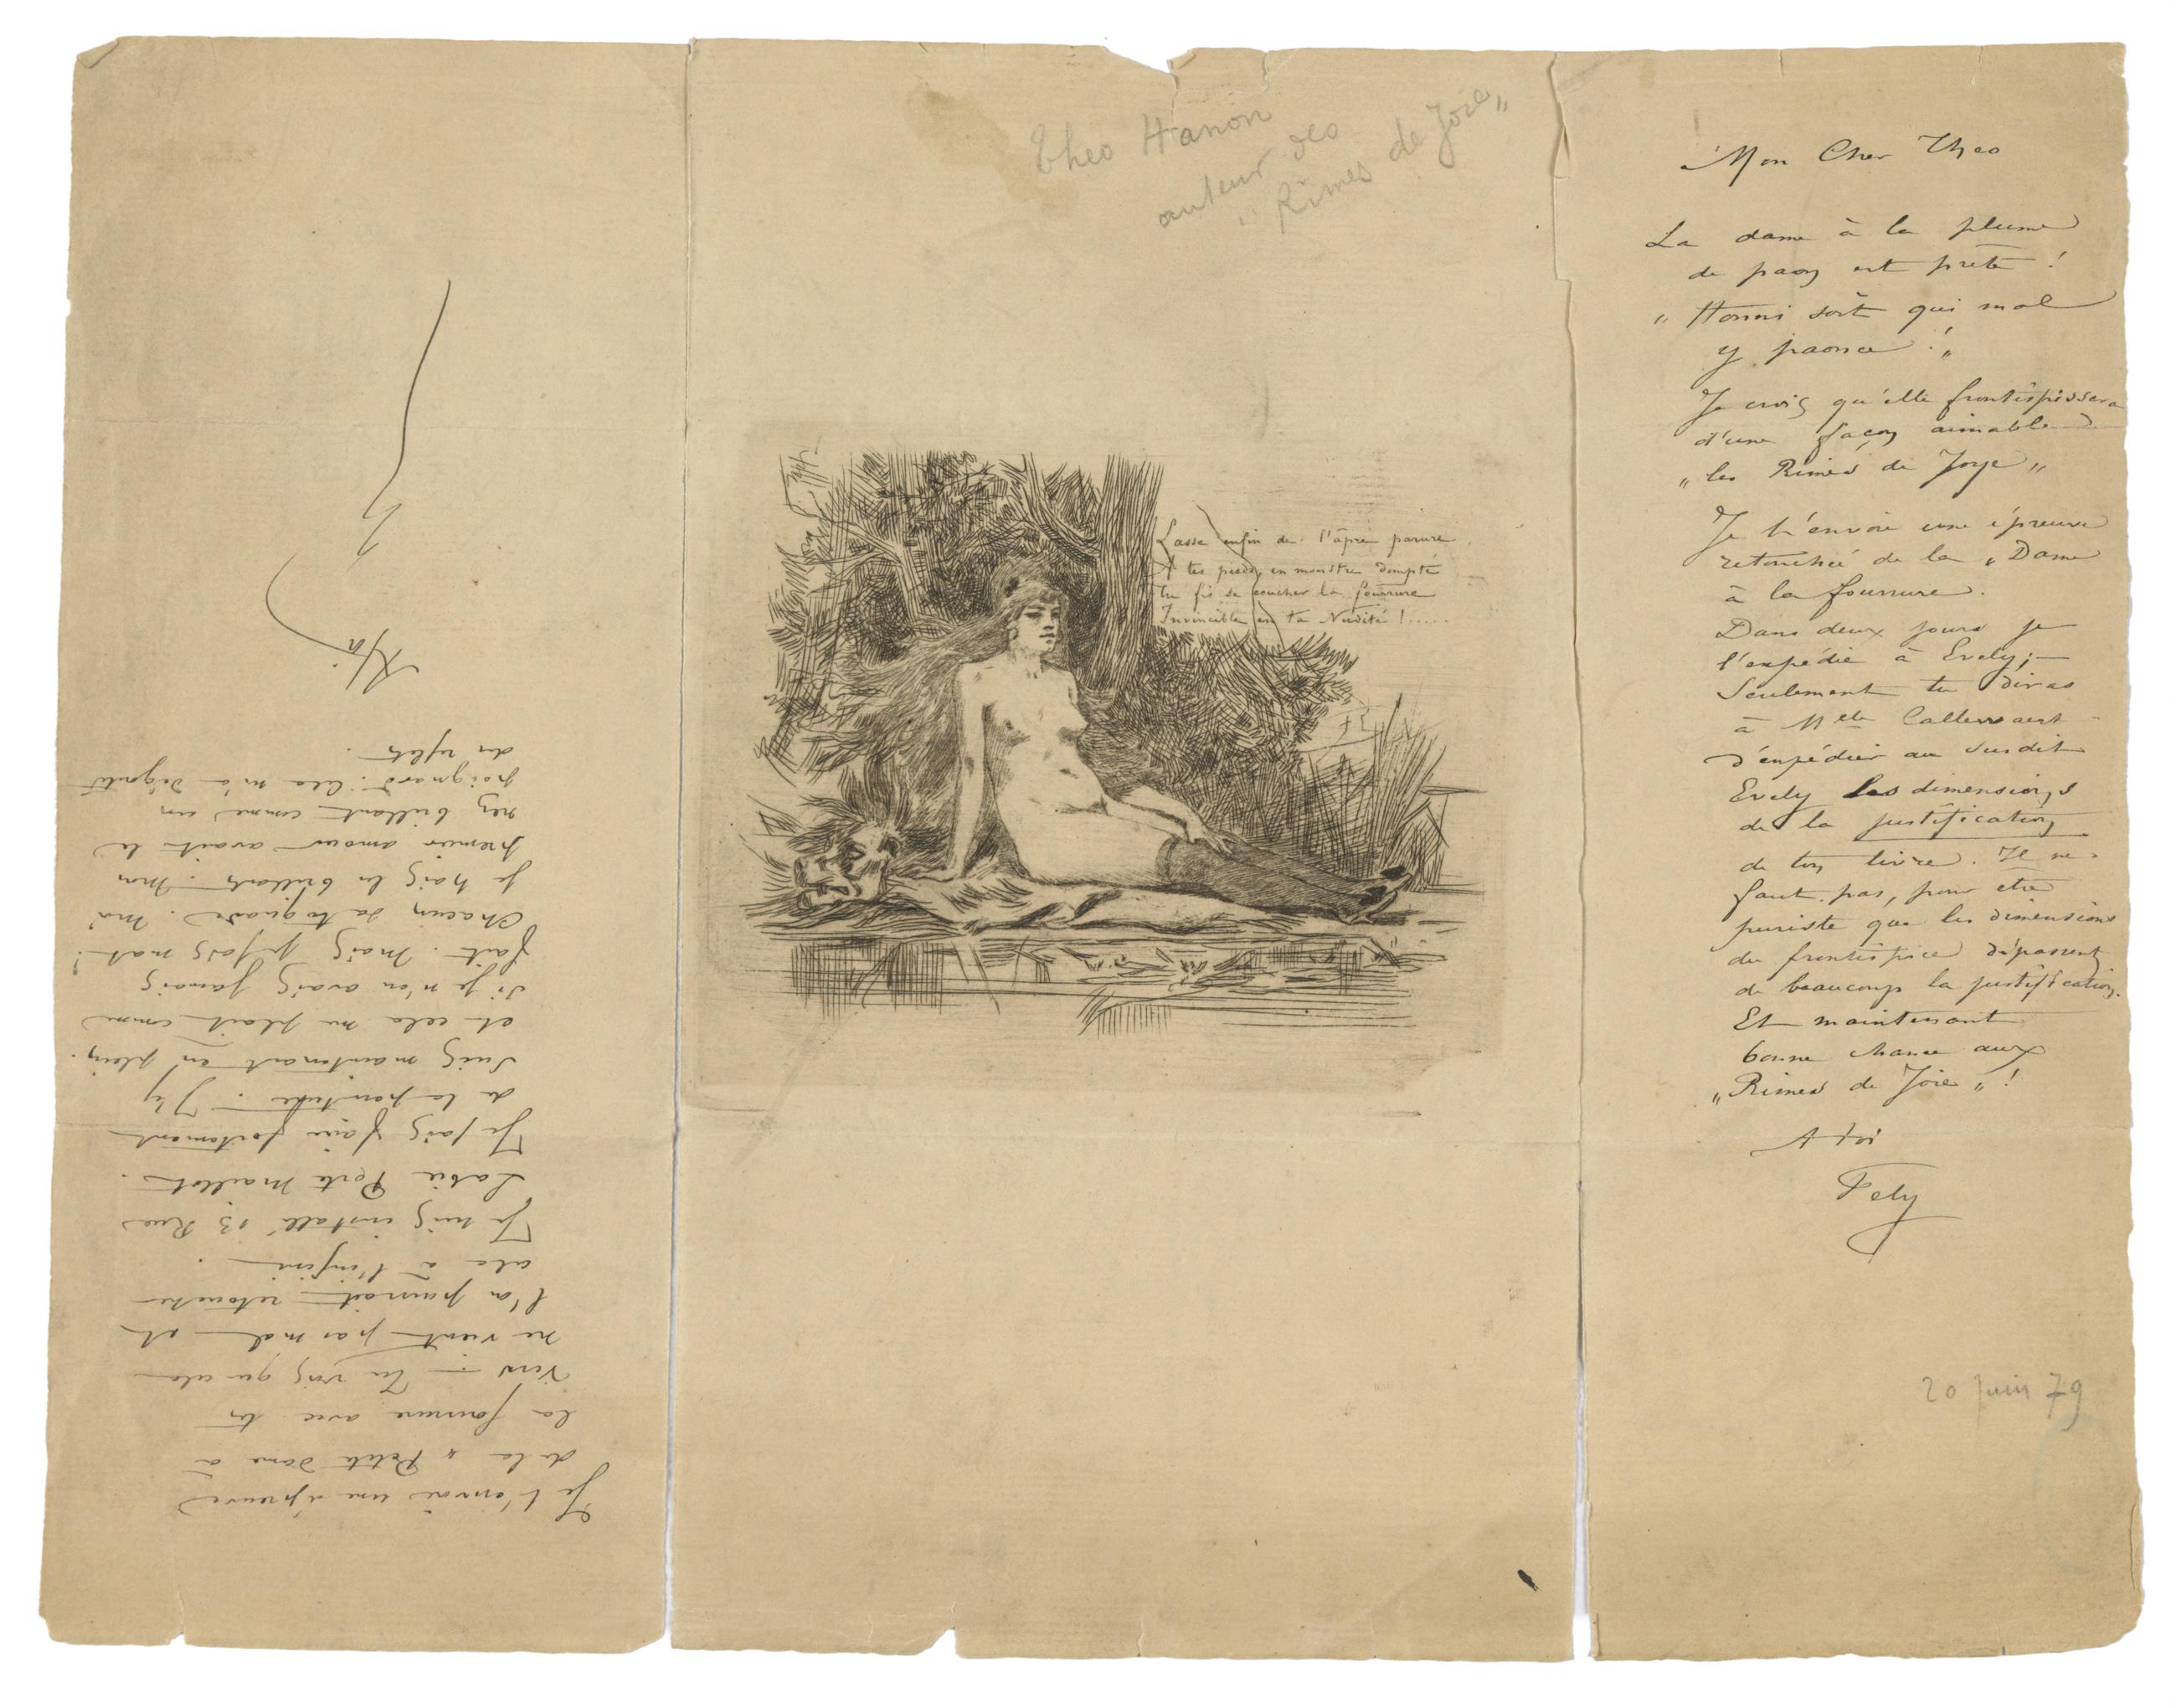 Theo Hanon
auteur des
" Rimes de Joie "
Lasse enfin de l'âpre parure
A tes pieds, en monstre dompté
Tu fis se coucher la fourrure
Invincible en ta Nudité !.....
Mon Cher Theo
La dame à la plume
de paon est prete !
" Honni soit qui mal
y paonse ! "
Je crois qu'elle frontispissera
d'une façon aimable
" les Rimes de Joye "
Je t'envoie une épreuve
retouchée de la " Dame
à la fourrure.
Dans deux jours je
l'expédie à Evely; —
Seulement tu diras
à Melle Callewaert
d'expédier au susdit
Evely les dimensions
de la justification
de ton livre. Il ne
faut pas, pour être
puriste que les dimensions
du frontispice dépassent
de beaucoup la justification.
Et maintenant
bonne chance aux
" Rimes de Joie " !
A toi
Fely
20 juin 79
Je t'envoie une épreuve
de la " Petite Dame à
la fourrure avec tes
vers — Tu vois que cela
ne vient pas mal et
l'on pourrait retoucher
cela à l'infini.
Je suis installé 13 Rue
Labie Porte Maillot.
Je fais faire
de la peinture. J'y
suis maintenant en plein.
et cela me plait comme
si je n'en avais jamais
fait. Mais je fais mat!
Chacun sa toquade. Moi
je hais les brillants. Mon
premier amour avait le
nez brillant comme un
poignard. Cela m'a dégouté
des reflets.